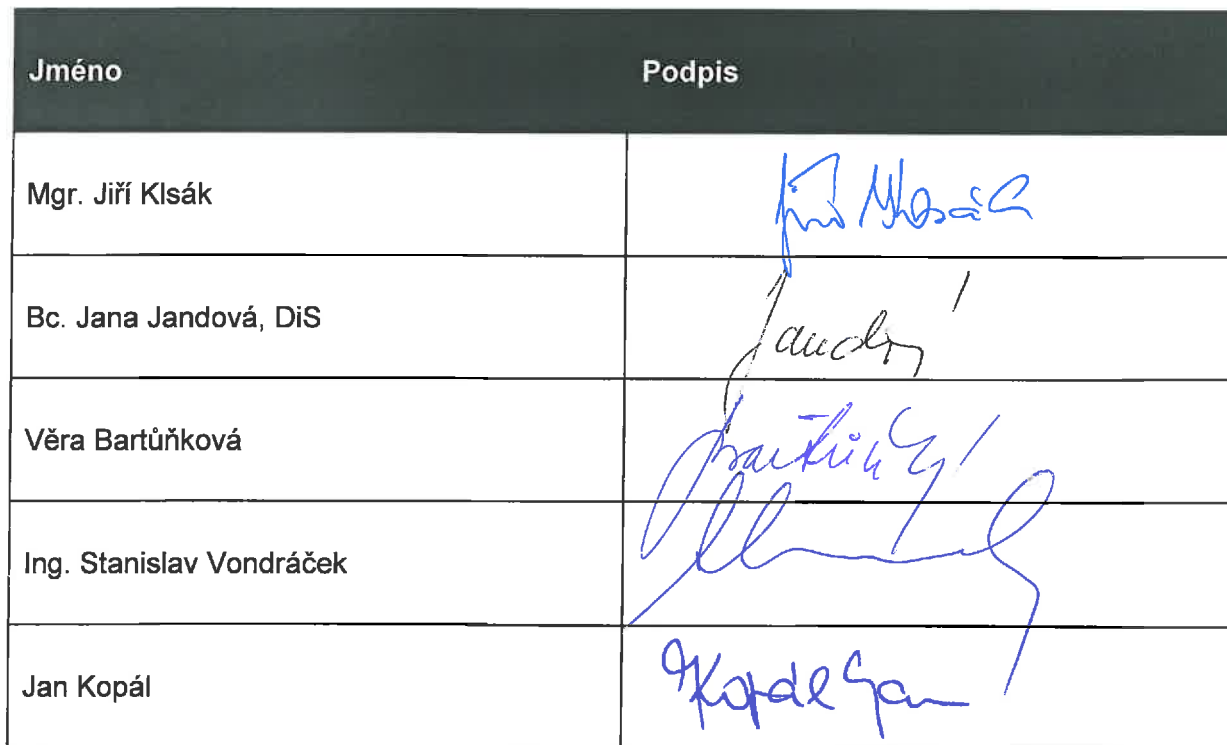 Jméno Podpis
Mgr. Jiří Klsák Jiří Klsák
Bc. Jana Jandová, DiS
Věra Bartůňková
Ing. Stanislav Vondráček
Jan Kopál Kopál Jan